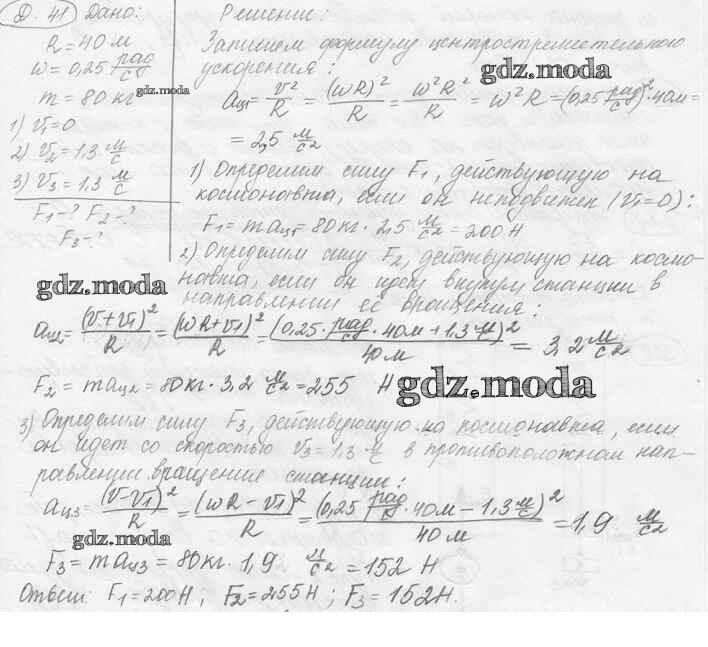 Д. 41 Дано: Решение:
R = 40 м
ω = 0,25 рад/с
m = 80 кг
1) v₁ = 0
2) v₂ = 1,3 м/с
3) v₃ = 1,3 м/с
F₁ - ? F₂ - ?
F₃ - ?
Запишем формулу центростремительного
ускорения:
gdz.moda
gdz.moda
aц₁ = v²/R = (ωR)²/R = ω²R²/R = ω²R = (0,25 рад/с)² · 40 м =
= 2,5 м/с²
1) Определим силу F₁, действующую на
космонавта, если он неподвижен (v₁=0):
F₁ = maц₁ = 80 кг · 2,5 м/с² = 200 Н
2) Определим силу F₂, действующую на космо-
навта, если он идет внутри станции в
направлении её вращения:
gdz.moda
aц₂ = (v+v₁)²/R = (ωR+v₁)²/R = (0,25 рад/с · 40 м + 1,3 м/с)²/40 м = 3,2 м/с²
F₂ = maц₂ = 80 кг · 3,2 м/с² = 255 Н
gdz.moda
3) Определим силу F₃, действующую на космонавта, если
он идет со скоростью v₃ = 1,3 м/с в противоположном нап-
равлении вращения станции:
aц₃ = (v-v₁)²/R = (ωR - v₁)²/R = (0,25 рад/с · 40 м - 1,3 м/с)²/40 м = 1,9 м/с²
gdz.moda
F₃ = maц₃ = 80 кг · 1,9 м/с² = 152 Н
Ответ: F₁ = 200 Н; F₂ = 255 Н; F₃ = 152 Н.